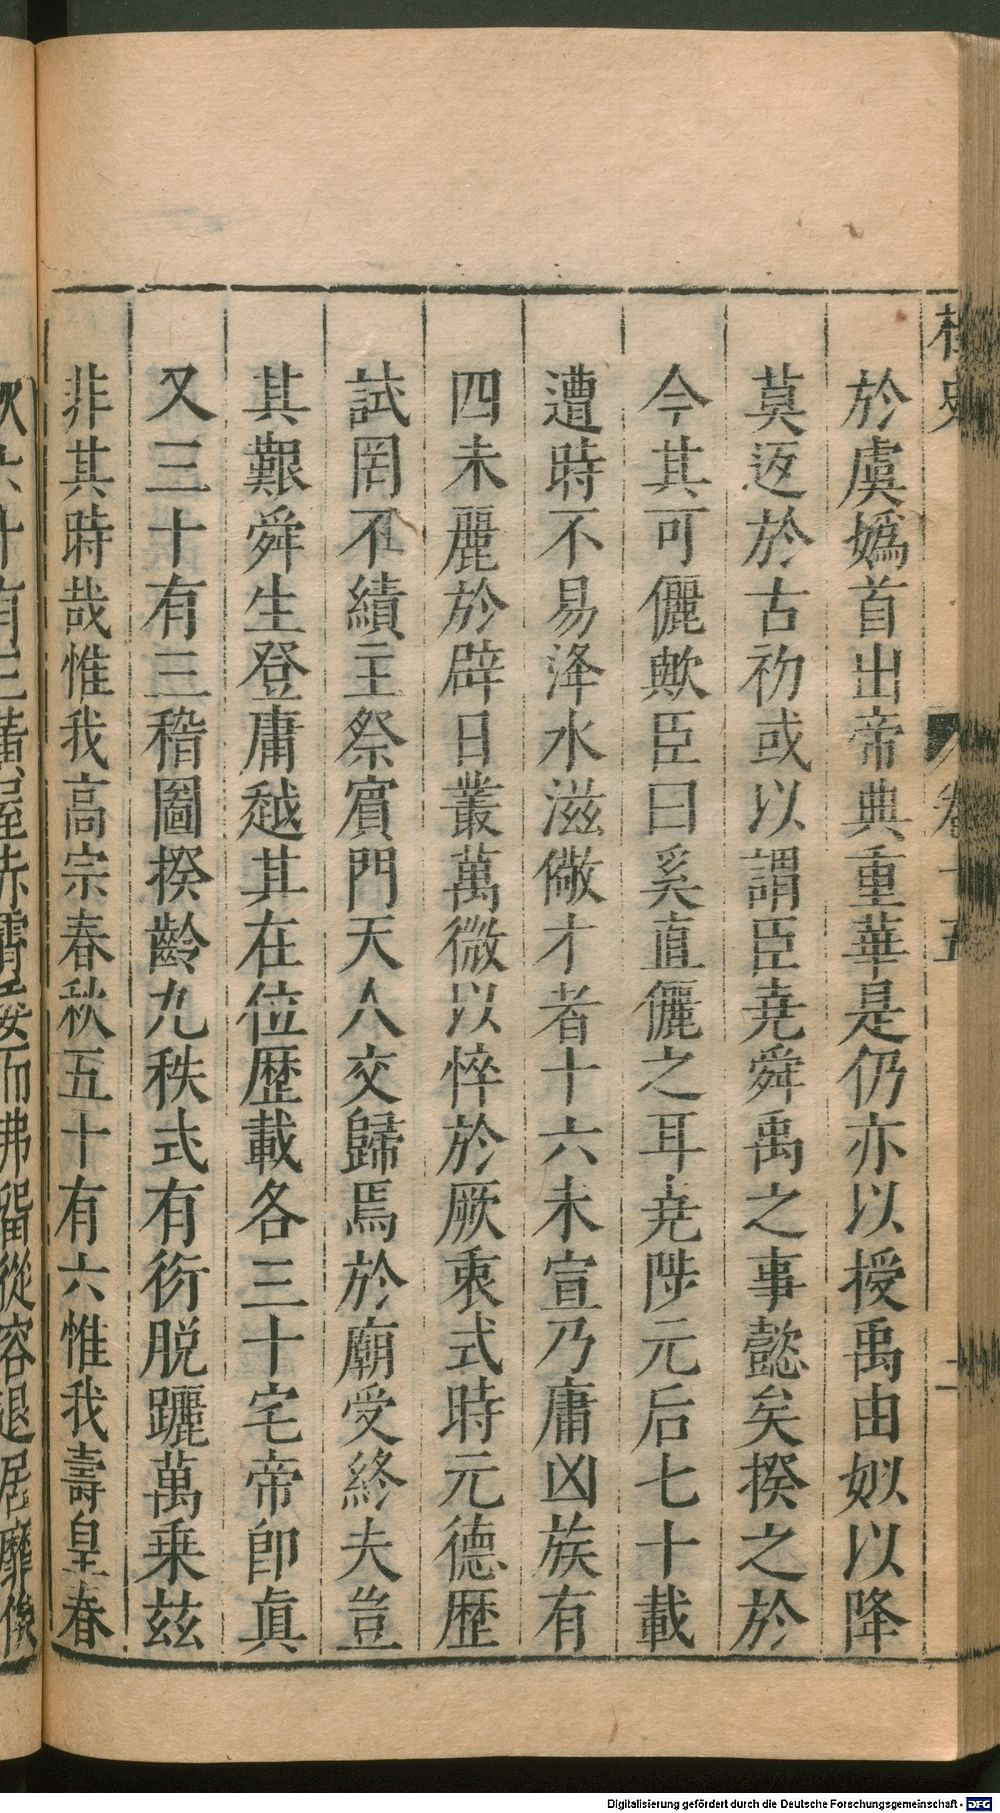 桯史
卷十五
二
於虞嬀首出帝典重華是仍亦以授禹由姒以降
莫返於古礽或以謂臣堯舜禹之事懿矣揆之於
今其可儷歟臣曰奚直儷之耳堯陟元后七十載
遭時不易洚水滋儆才者十六未宣乃庸凶族有
四未麗於辟日叢萬微以悴於厥衷式時元德歷
試罔不績主祭賓門天人交歸焉於廟受終夫豈
其艱舜生登庸越其在位歷載各三十宅帝卽眞
又三十有三稽圖揆齡九秩式有衍脱躧萬乗茲
非其時哉惟我高宗春秋五十有六惟我壽皇春
秋六十有三黃屋赤霄妥而弗留從容退居靡俟
Digitalisierung gefördert durch die Deutsche Forschungsgemeinschaft - DFG